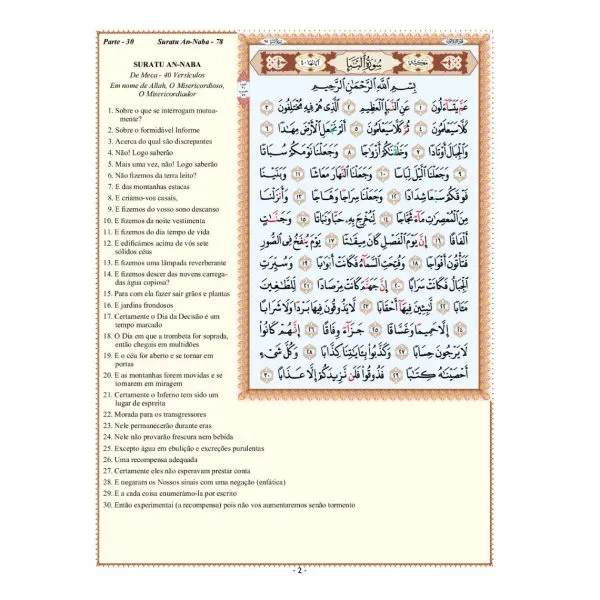 Parte - 30 Suratu An-Naba - 78
SURATU AN-NABA
De Meca - 40 Versículos
Em nome de Allah, O Misericordioso,
O Misericordiador
1. Sobre o que se interrogam mutua-
mente?
2. Sobre o formidável Informe
3. Acerca do qual são discrepantes
4. Não! Logo saberão
5. Mais uma vez, não! Logo saberão
6. Não fizemos da terra leito?
7. E das montanhas estacas
8. E criámo-vos casais,
9. E fizemos do vosso sono descanso
10. E fizemos da noite vestimenta
11. E fizemos do dia tempo de vida
12. E edificámos acima de vós sete
sólidos céus
13. E fizemos uma lâmpada reverberante
14. E fizemos descer das nuvens carrega-
das água copiosa?
15. Para com ela fazer sair grãos e plantas
16. E jardins frondosos
17. Certamente o Dia da Decisão é um
tempo marcado
18. O Dia em que a trombeta for soprada,
então chegais em multidões
19. E o céu for aberto e se tornar em
portas
20. E as montanhas forem movidas e se
tornarem em miragem
21. Certamente o Inferno tem sido um
lugar de espreita
22. Morada para os transgressores
23. Nele permanecerão durante eras
24. Nele não provarão frescura nem bebida
25. Excepto água em ebulição e excreções purulentas
26. Uma recompensa adequada
27. Certamente eles não esperavam prestar conta
28. E negaram os Nossos sinais com uma negação (enfática)
29. E a cada coisa enumerámo-la por escrito
30. Então experimentai (a recompensa) pois não vos aumentaremos senão tormento
مكية سورة النبأ آياتها ٤٠
بِسْمِ اللَّهِ الرَّحْمَٰنِ الرَّحِيمِ
عَمَّ يَتَسَاءَلُونَ ١ عَنِ النَّبَإِ الْعَظِيمِ ٢ الَّذِي هُمْ فِيهِ مُخْتَلِفُونَ ٣
كَلَّا سَيَعْلَمُونَ ٤ ثُمَّ كَلَّا سَيَعْلَمُونَ ٥ أَلَمْ نَجْعَلِ الْأَرْضَ مِهَادًا ٦
وَالْجِبَالَ أَوْتَادًا ٧ وَخَلَقْنَاكُمْ أَزْوَاجًا ٨ وَجَعَلْنَا نَوْمَكُمْ سُبَاتًا
٩ وَجَعَلْنَا اللَّيْلَ لِبَاسًا ١٠ وَجَعَلْنَا النَّهَارَ مَعَاشًا ١١ وَبَنَيْنَا
فَوْقَكُمْ سَبْعًا شِدَادًا ١٢ وَجَعَلْنَا سِرَاجًا وَهَّاجًا ١٣ وَأَنزَلْنَا
مِنَ الْمُعْصِرَاتِ مَاءً ثَجَّاجًا ١٤ لِّنُخْرِجَ بِهِ حَبًّا وَنَبَاتًا ١٥ وَجَنَّاتٍ
أَلْفَافًا ١٦ إِنَّ يَوْمَ الْفَصْلِ كَانَ مِيقَاتًا ١٧ يَوْمَ يُنفَخُ فِي الصُّورِ
فَتَأْتُونَ أَفْوَاجًا ١٨ وَفُتِحَتِ السَّمَاءُ فَكَانَتْ أَبْوَابًا ١٩ وَسُيِّرَتِ
الْجِبَالُ فَكَانَتْ سَرَابًا ٢٠ إِنَّ جَهَنَّمَ كَانَتْ مِرْصَادًا ٢١ لِّلطَّاغِينَ
مَآبًا ٢٢ لَّابِثِينَ فِيهَا أَحْقَابًا ٢٣ لَّا يَذُوقُونَ فِيهَا بَرْدًا وَلَا شَرَابًا
٢٤ إِلَّا حَمِيمًا وَغَسَّاقًا ٢٥ جَزَاءً وِفَاقًا ٢٦ إِنَّهُمْ كَانُوا
لَا يَرْجُونَ حِسَابًا ٢٧ وَكَذَّبُوا بِآيَاتِنَا كِذَّابًا ٢٨ وَكُلَّ شَيْءٍ
أَحْصَيْنَاهُ كِتَابًا ٢٩ فَذُوقُوا فَلَن نَّزِيدَكُمْ إِلَّا عَذَابًا ٣٠
- 2 -